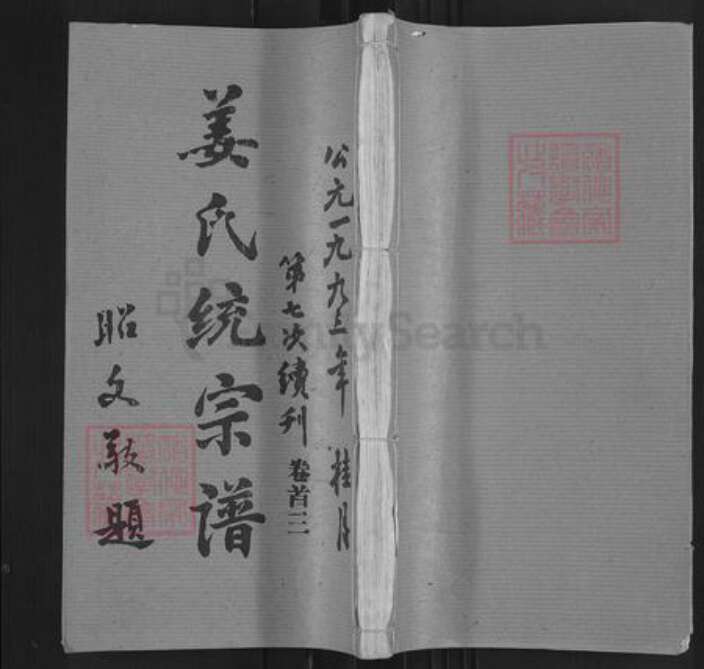 公元一九九三年 桂月
第七次續刊 卷首三
姜氏统宗谱
昭文敬題